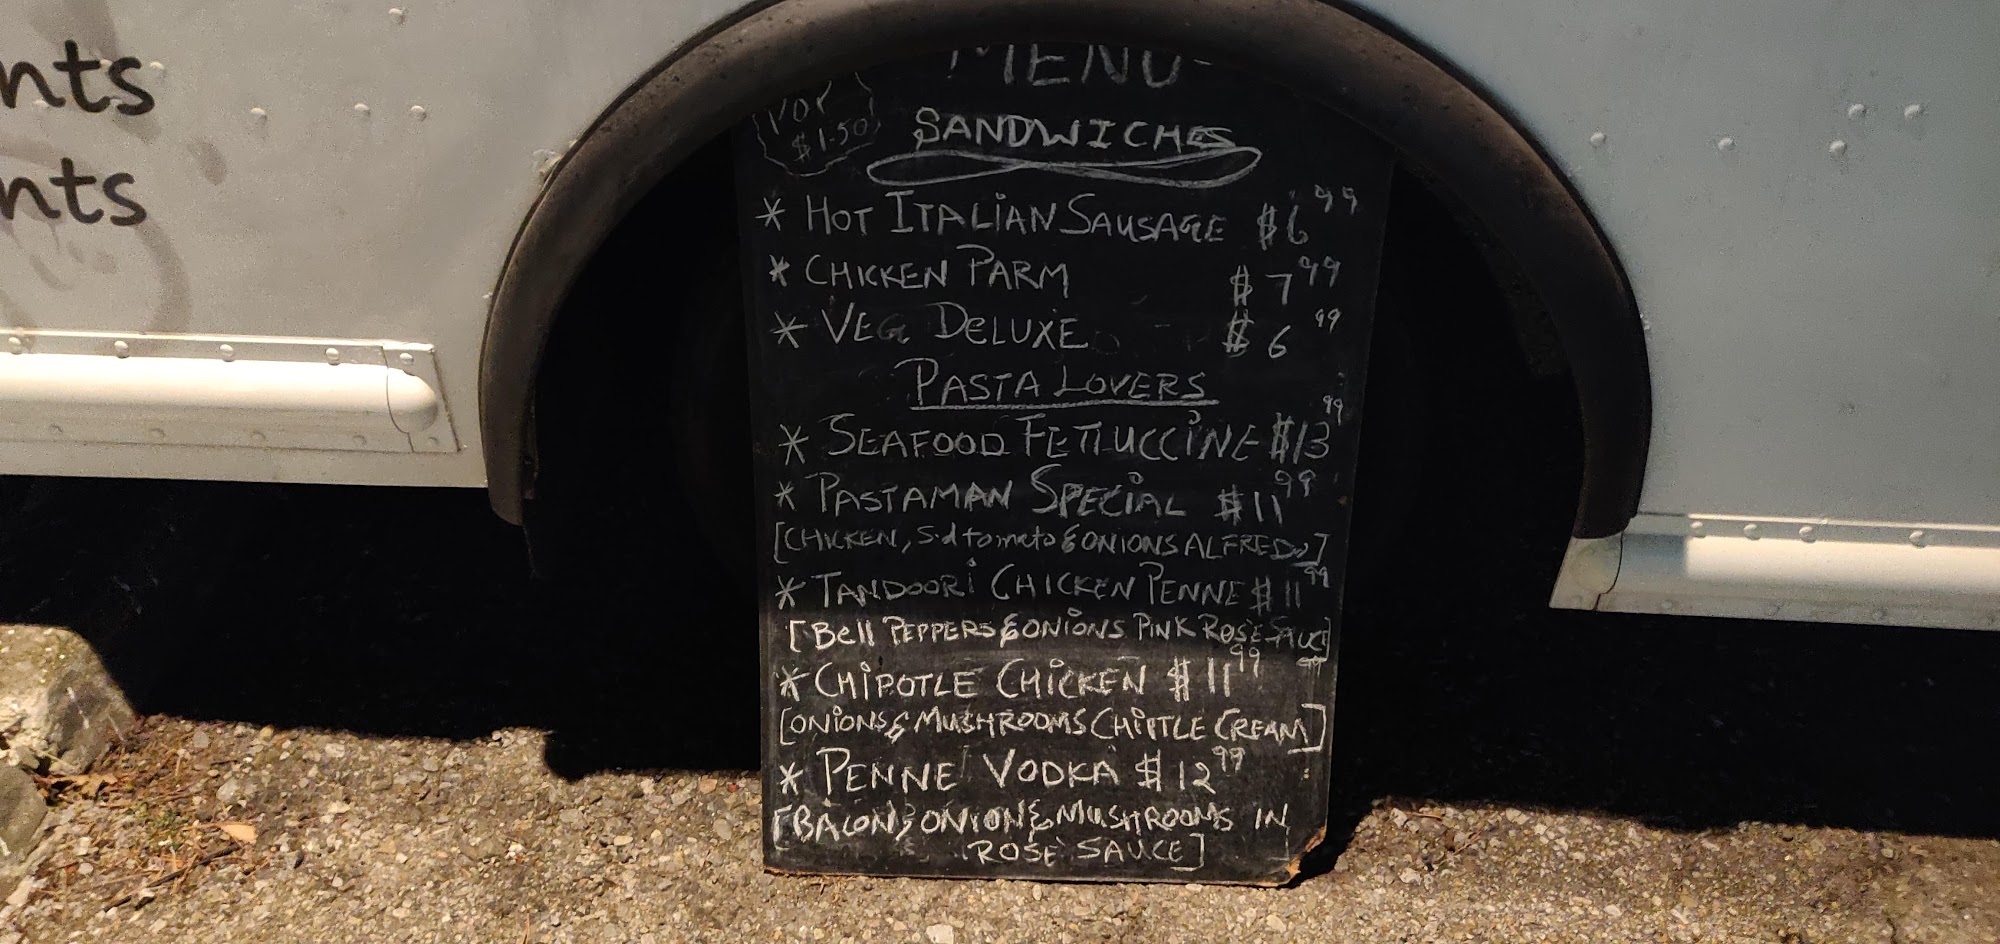 nts
nts
MENU
POP
$1.50
SANDWICHES
* HOT ITALIAN SAUSAGE $6.99
* CHICKEN PARM $7.99
* VEG DeLUXE $6.99
PASTA LOVERS
* SEAFOOD FETTUCCINE $13.99
* PASTAMAN SPECIAL $11.99
[CHICKEN, S.d tomato & ONIONS ALFREDo]
* TANDOORI CHICKEN PENNE $11.99
[Bell PEPPERS & ONIONS PINK ROSÉ SAUCE]
* CHIPOTLE CHICKEN $11.99
[ONIONS & MUSHROOMS CHIPTLE CREAM]
* PENNE VODKA $12.99
[BACON, ONION & MUSHROOMS IN
ROSÉ SAUCE]